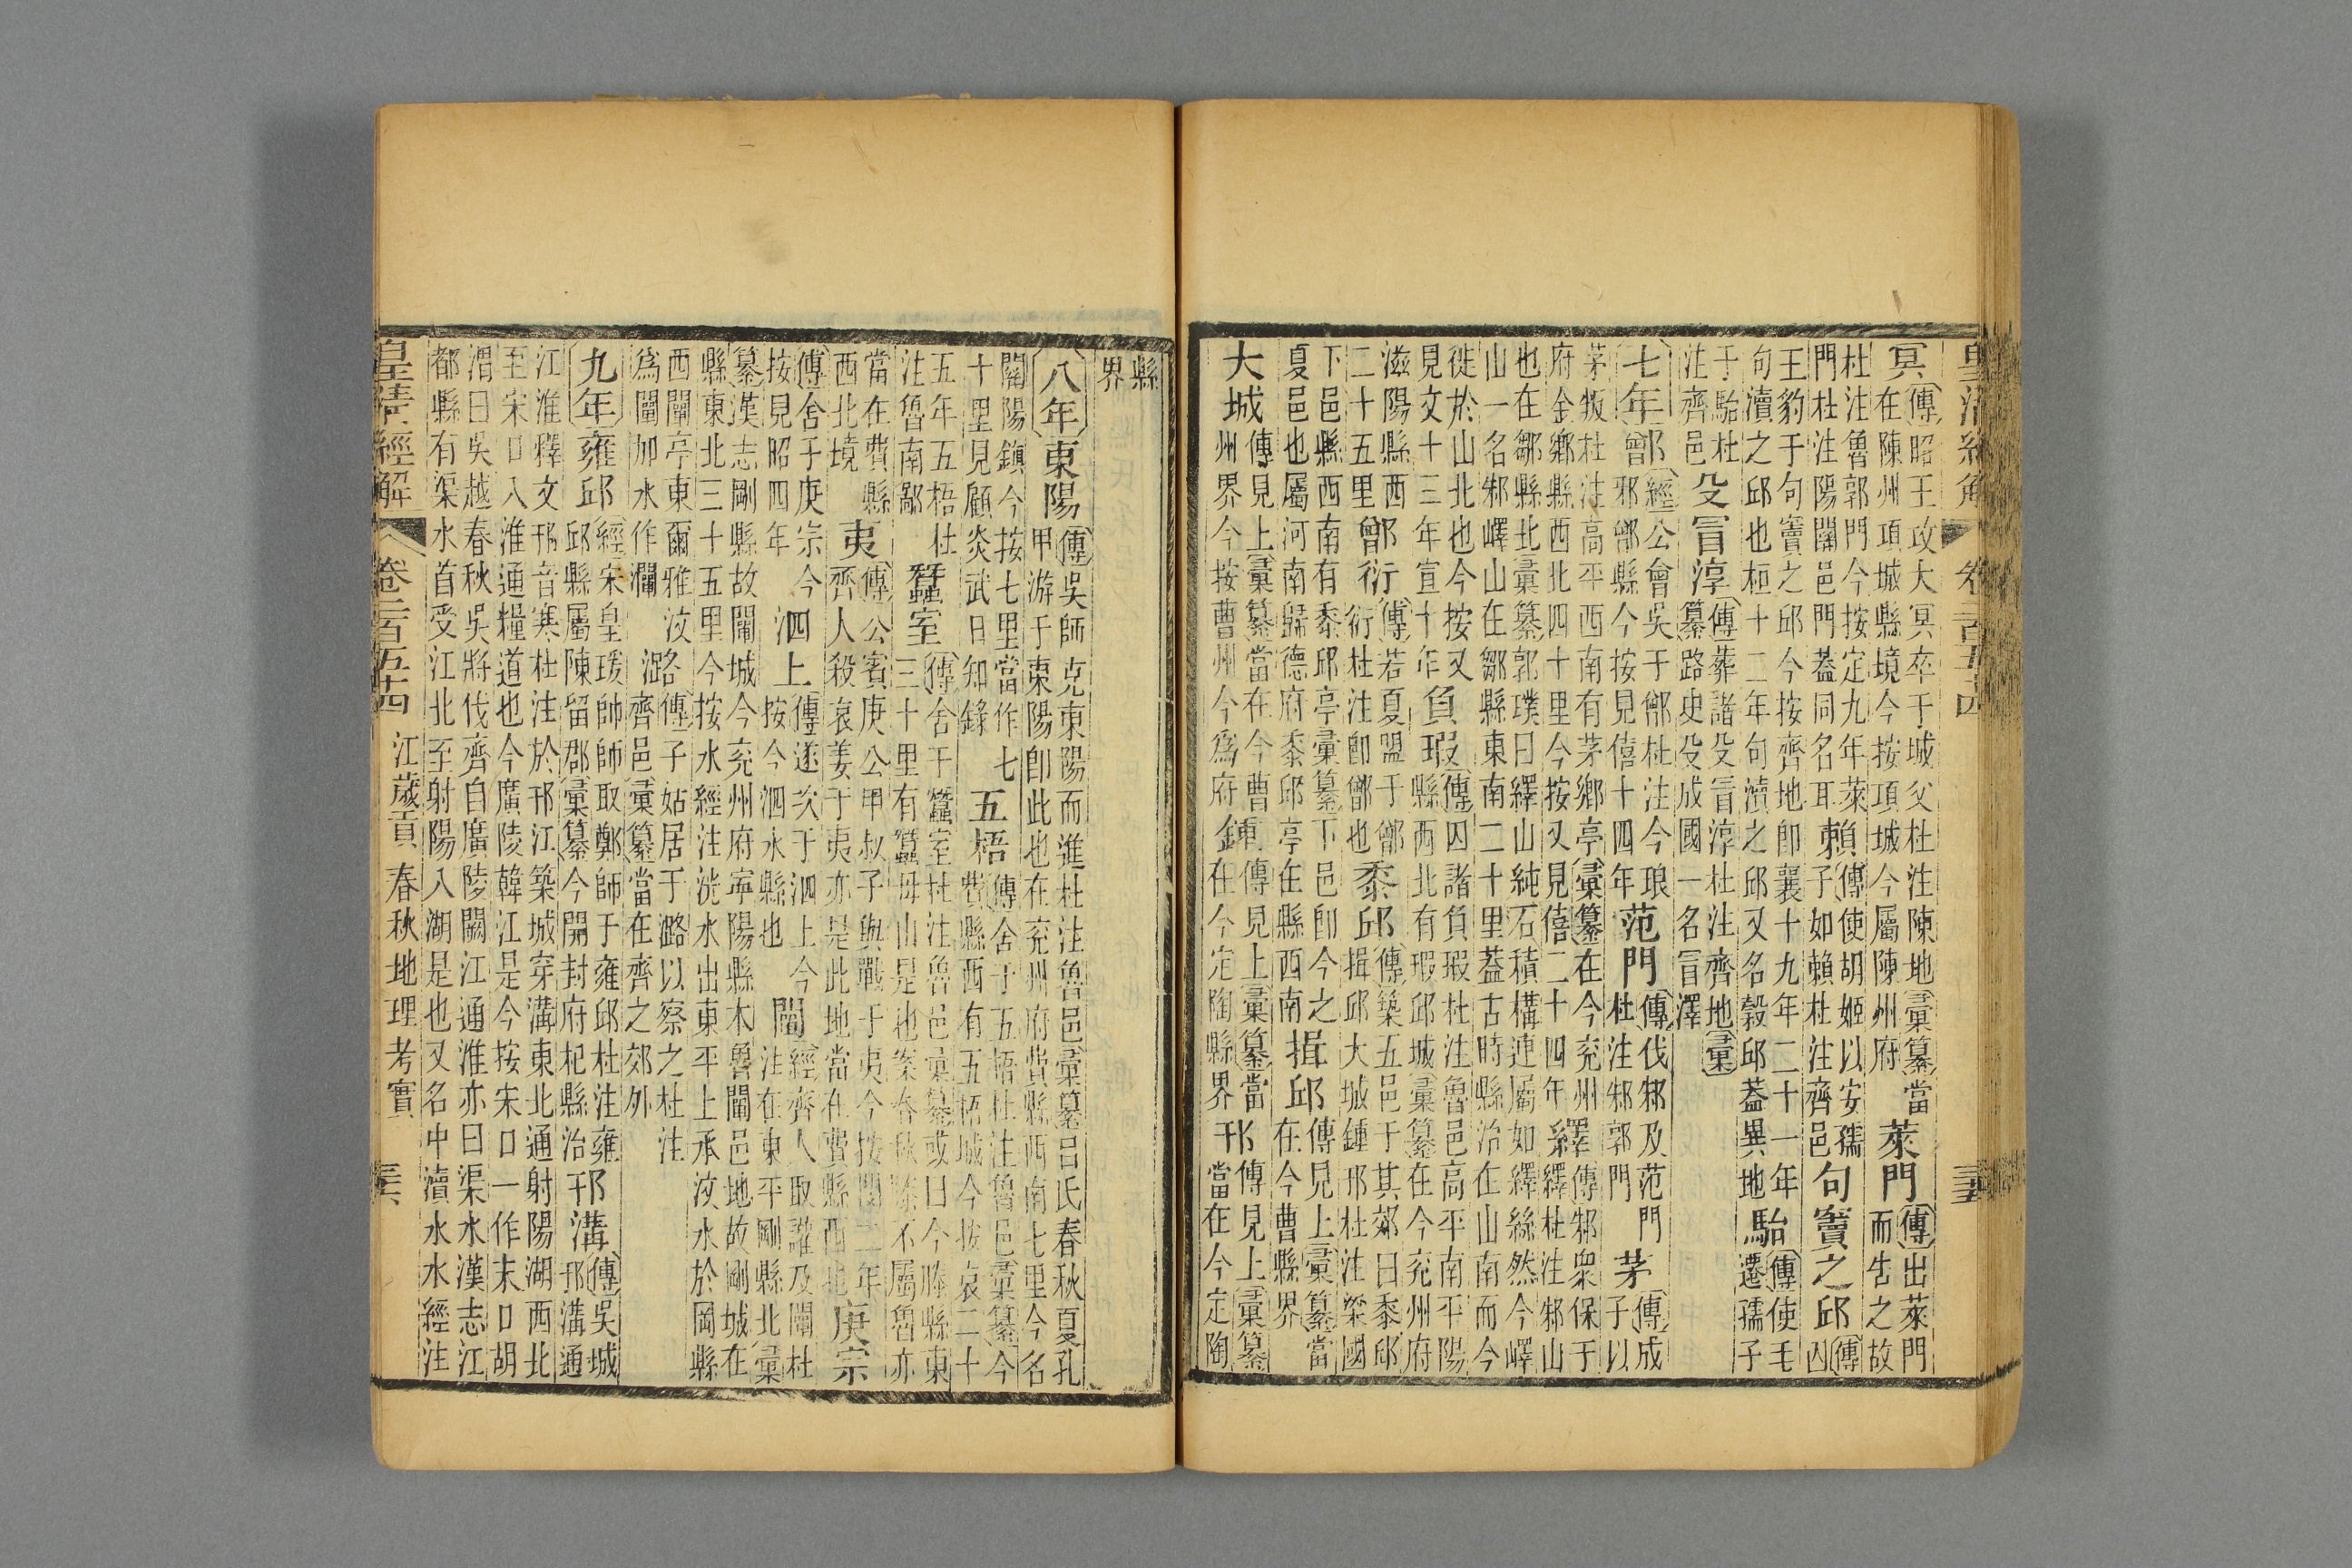 皇清經解 卷二百五十四 三十五
冥 傳昭王攻大冥卒于城父杜注陳地彙纂當
在陳州項城縣境今按項城今屬陳州府 萊門 傳出萊門
而告之故
杜注魯郭門今按定九年萊
門杜注陽關邑門蓋同名耳 賴 傳使胡姬以安孺
子如賴杜注齊邑 句竇之邱 傳
囚
王豹于句竇之邱今按齊地卽襄十九年二十一年
句瀆之邱也桓十二年句瀆之邱又名穀邱蓋異地 駘 傳使毛
遷孺子
于駘杜
注齊邑 殳冒淳 傳葬諸殳冒淳杜注齊地彙
纂路史殳成國一名冒澤
七年 鄫 經公會吳于鄫杜注今琅
邪鄫縣今按見僖十四年 范門 傳伐邾及范門
杜注邾郭門 茅 傳成
子以
茅叛杜注高平西南有茅鄉亭彙纂在今兗州
府金鄉縣西北四十里今按又見僖二十四年 繹 傳邾衆保于
繹杜注邾山
也在鄒縣北彙纂郭璞曰繹山純石積構連屬如繹絲然今嶧
山一名邾嶧山在鄒縣東南二十里蓋古時縣治在山南而今
徙於山北也今按又
見文十三年宣十年 負瑕 傳囚諸負瑕杜注魯邑高平南平陽
縣西北有瑕邱城彙纂在今兗州府
滋陽縣西
二十五里 鄫衍 傳若夏盟于鄫
衍杜注卽鄫也 黍邱 傳築五邑于其郊曰黍邱
揖邱大城鍾邗杜注梁國
下邑縣西南有黍邱亭彙纂下邑卽今之
夏邑也屬河南歸德府黍邱亭在縣西南 揖邱 傳見上彙纂當
在今曹縣界
大城 傳見上彙纂當在今曹
州界今按曹州今爲府 鍾 傳見上彙纂當
在今定陶縣界 邗 傳見上彙纂
當在今定陶
縣
界
八年 東陽 傳吳師克東陽而進杜注魯邑彙纂呂氏春秋夏孔
甲游于東陽卽此也在兗州府費縣西南七里今名
關陽鎮今按七里當作七
十里見顧炎武日知錄 五梧 傳舍于五梧杜注魯邑彙纂今
費縣西有五梧城今按哀二十
五年五梧杜
注魯南鄙 蠶室 傳舍于蠶室杜注魯邑彙纂或曰今滕縣東
三十里有蠶母山是也案春秋滕不屬魯亦
當在費縣
西北境 夷 傳公賓庚公甲叔子與戰于夷今按閔二年
齊人殺哀姜于夷亦是此地當在費縣西北 庚宗
傳舍于庚宗今
按見昭四年 泗上 傳遂次于泗上今
按今泗水縣也 闡 經齊人取讙及闡杜
注在東平剛縣北彙
纂漢志剛縣故闡城今兗州府寧陽縣本魯闡邑地故剛城在
縣東北三十五里今按水經注洸水出東平上承汶水於岡縣
西闡亭東爾雅汶
爲闡加水作灛 潞 傳子姑居于潞以察之杜注
齊邑彙纂當在齊之郊外
九年 雍邱 經宋皇瑗帥師取鄭師于雍邱杜注雍
邱縣屬陳留郡彙纂今開封府杞縣治 邗溝 傳吳城
邗溝通
江淮釋文邗音寒杜注於邗江築城穿溝東北通射陽湖西北
至宋口入淮通糧道也今廣陵韓江是今按宋口一作末口胡
渭曰吳越春秋吳將伐齊自廣陵闕江通淮亦曰渠水漢志江
都縣有渠水首受江北至射陽入湖是也又名中瀆水水經注
皇清經解 卷二百五十四 江歲貢春秋地理考實 三十六